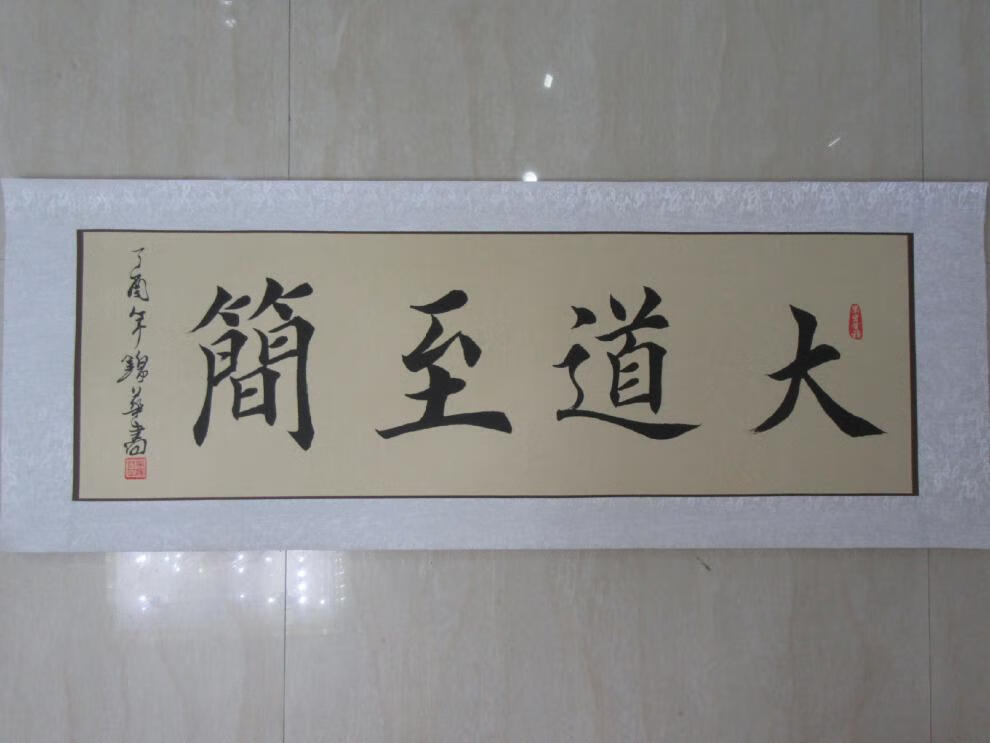 大道至簡
丁酉年錦華書